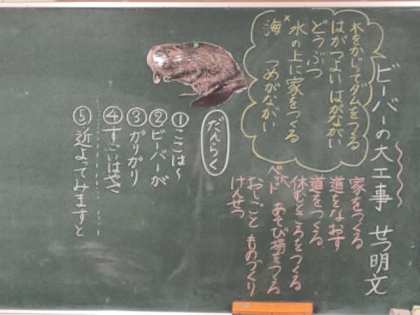 ビーバーの大工事 せつ明文
木をかじってダムをつくる
はがつよい はがながい
どうぶつ
水の上に家をつくる
海× つめがながい
家をつくる
道をなおす
道をつくる
休むところをつくる
あそび場をつくる
おしごと ものづくり
けんせつ
だんらく
①ここは〜
②ビーバーが
③ガリガリ
④すごいはやさ
⑤近よってみますと